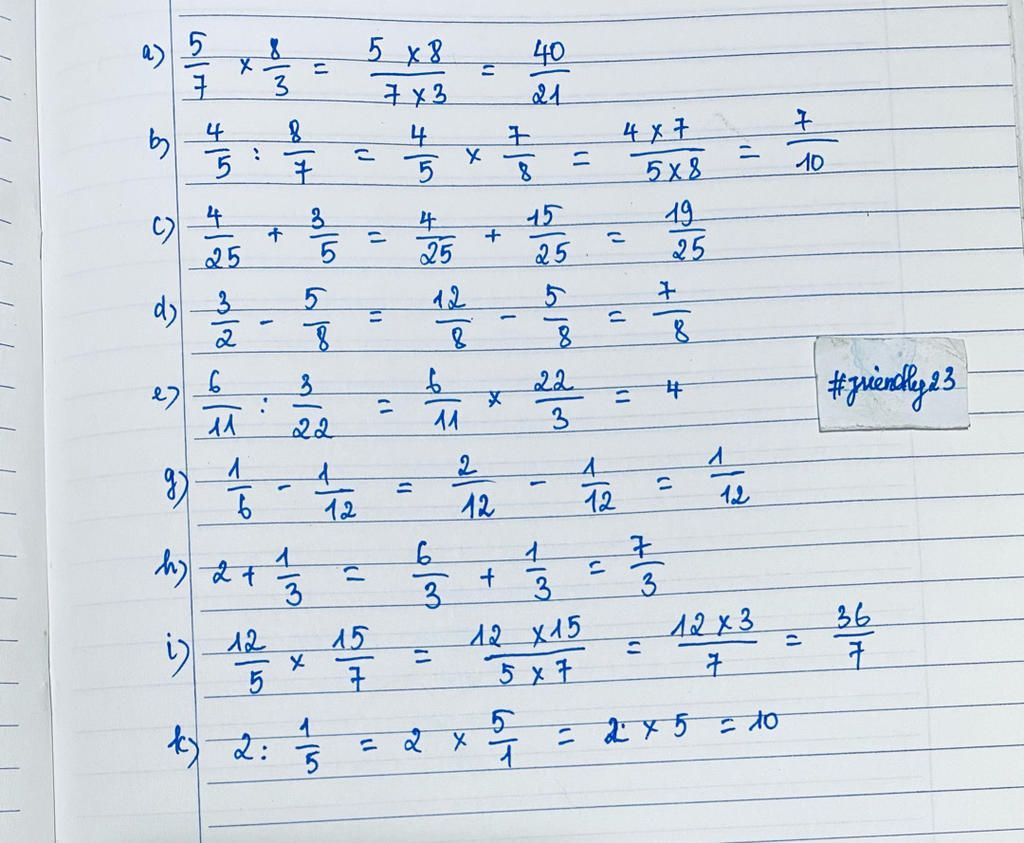 a) 5/7 × 8/3 = 5 × 8/7 × 3 = 40/21
b) 4/5 : 8/7 = 4/5 × 7/8 = 4 × 7/5 × 8 = 7/10
c) 4/25 + 3/5 = 4/25 + 15/25 = 19/25
d) 3/2 - 5/8 = 12/8 - 5/8 = 7/8
e) 6/11 : 3/22 = 6/11 × 22/3 = 4
#friendly23
g) 1/6 - 1/12 = 2/12 - 1/12 = 1/12
h) 2 + 1/3 = 6/3 + 1/3 = 7/3
i) 12/5 × 15/7 = 12 × 15/5 × 7 = 12 × 3/7 = 36/7
k) 2 : 1/5 = 2 × 5/1 = 2 × 5 = 10